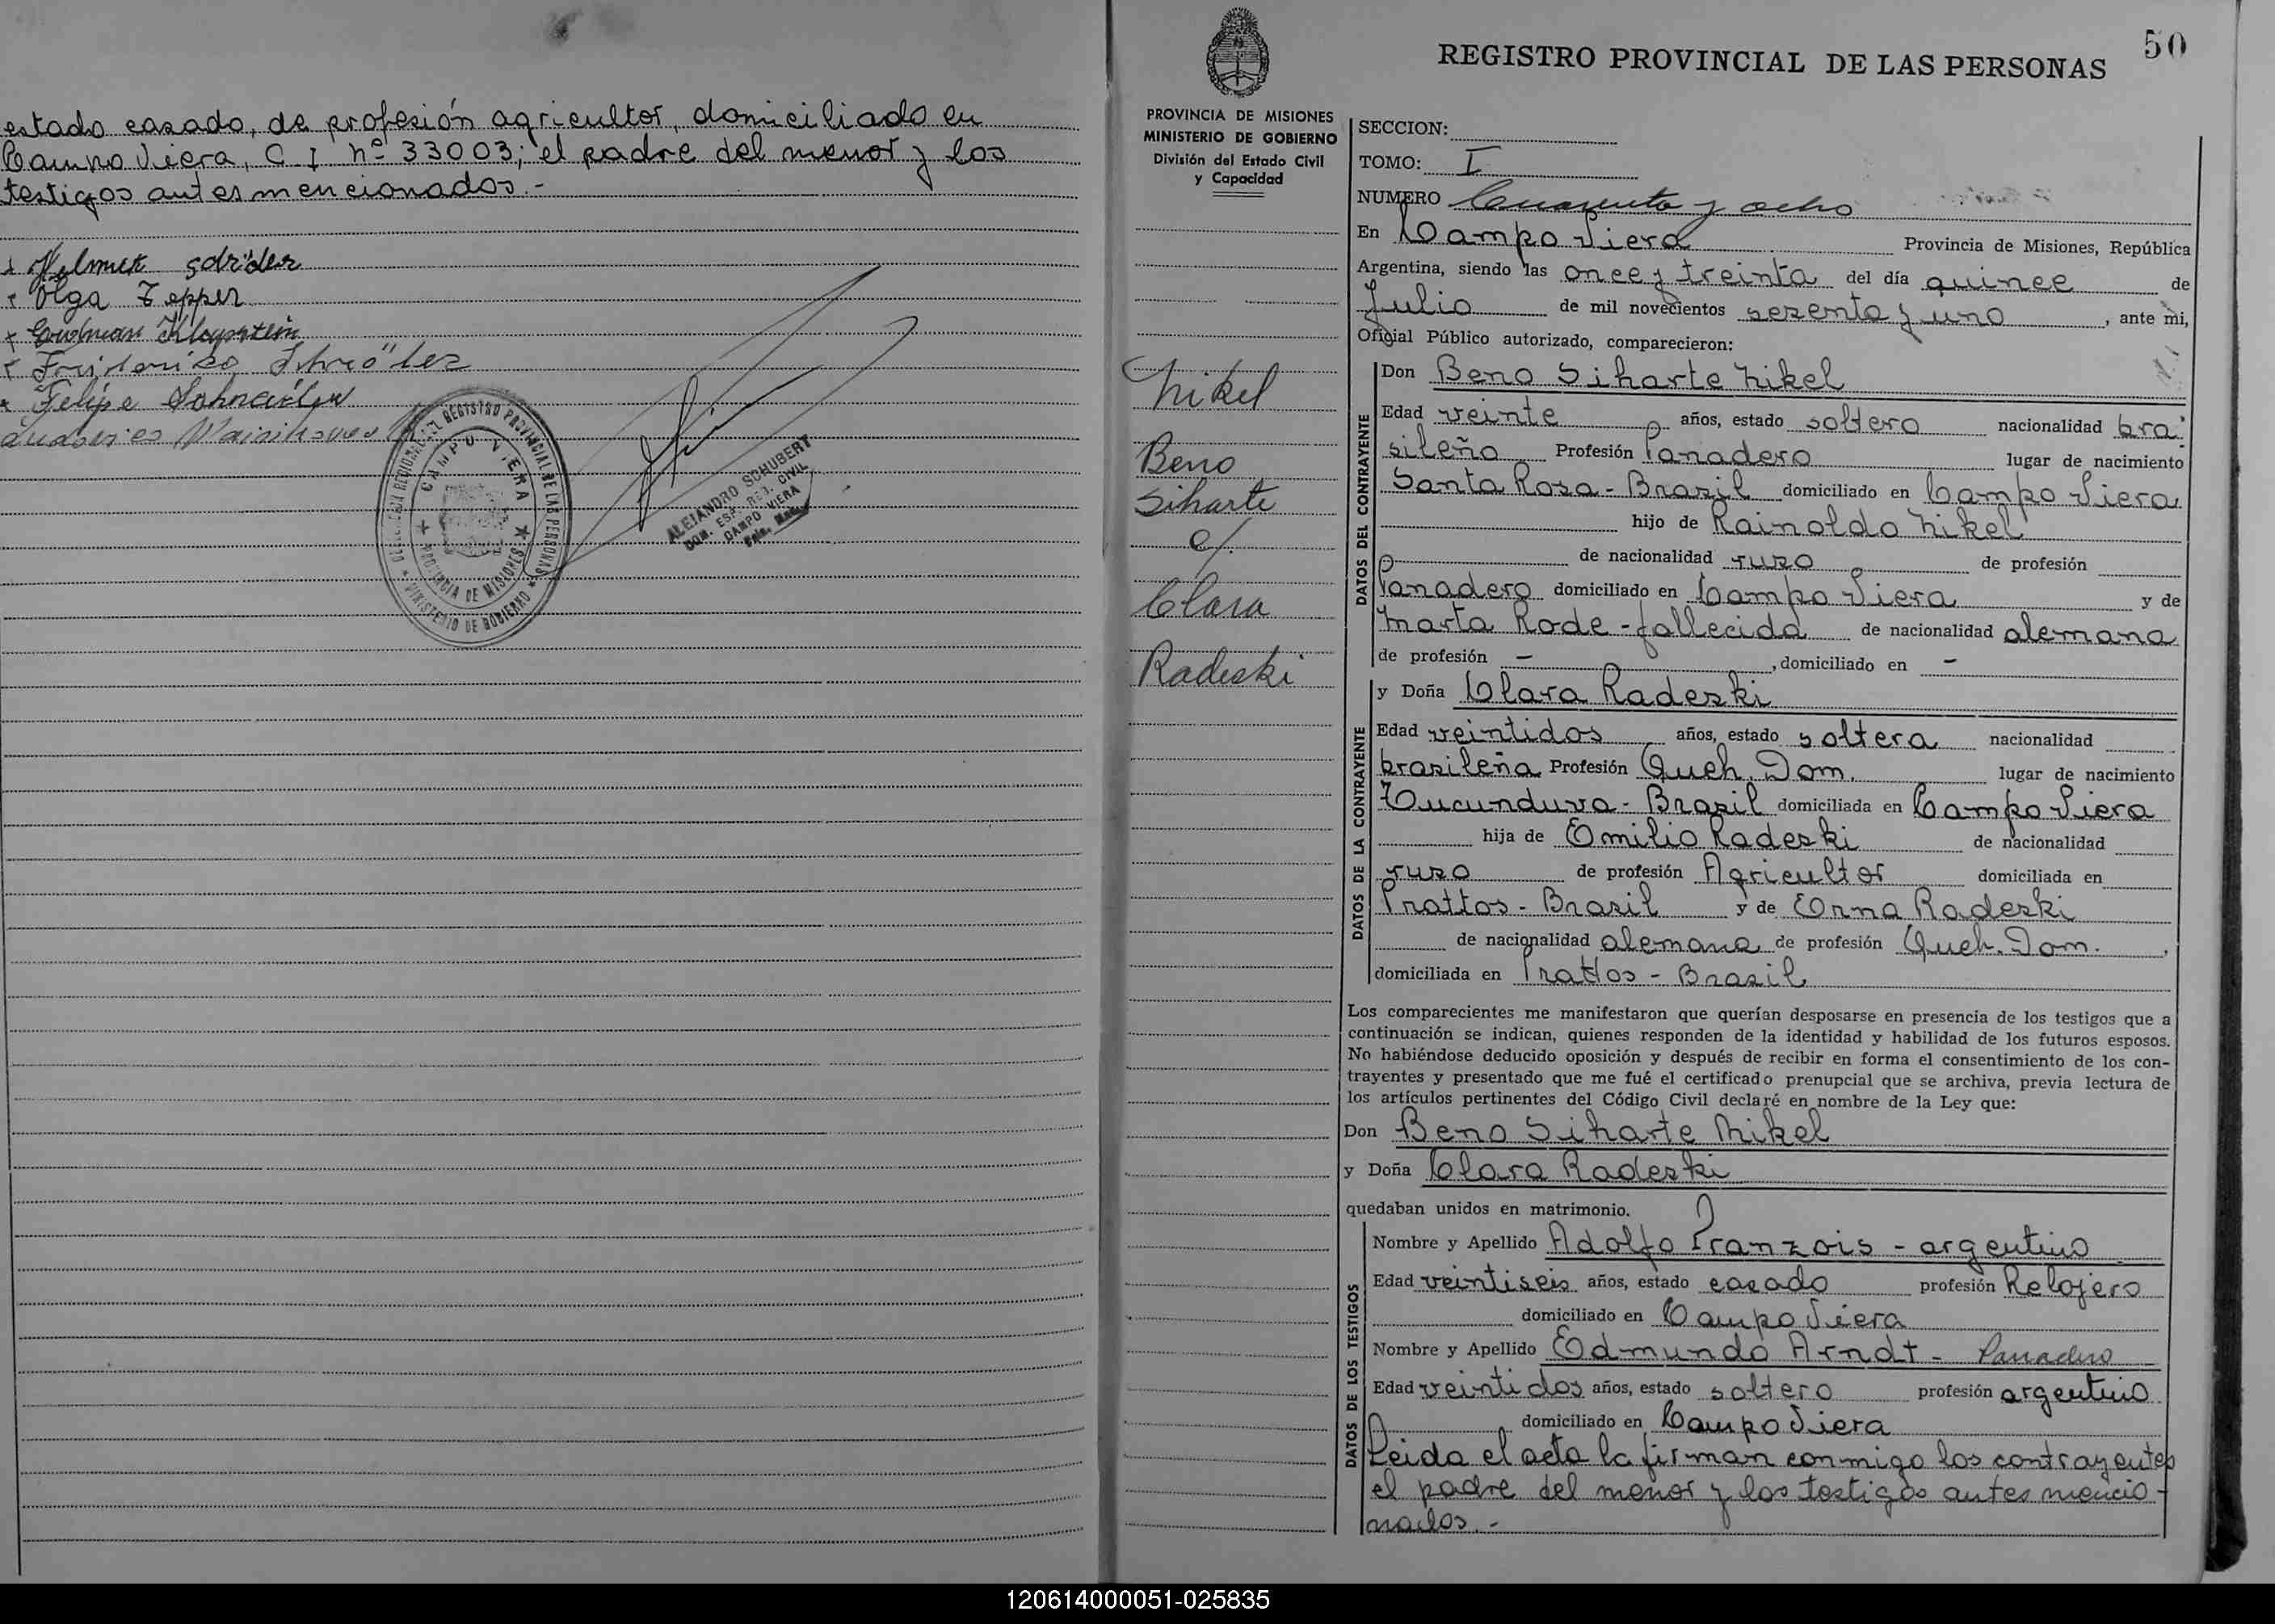 estado casado, de profesión agricultor, domiciliado en
Campo Viera, C I nº 33003; el padre del menor y los
testigos antes mencionados.-
Helmut Schröder
Olga Tepper
Felipe
REGISTRO PROVINCIAL DE LAS PERSONAS
CAMPO VIERA
PROVINCIA DE MISIONES
MINISTERIO DE GOBIERNO
ALEJANDRO SCHUBERT
REJ. CIVIL
CAMPO VIERA
50
REGISTRO PROVINCIAL DE LAS PERSONAS
PROVINCIA DE MISIONES
MINISTERIO DE GOBIERNO
División del Estado Civil
y Capacidad
Nikel
Beno
Siharte
c/.
Clara
Radeski
SECCION:
TOMO: I
NUMERO Cuarenta y ocho
En Campo Viera Provincia de Misiones, República
Argentina, siendo las once y treinta del día quince de
Julio de mil novecientos sesenta y uno, ante mi,
Oficial Público autorizado, comparecieron:
DATOS DEL CONTRAYENTE
Don Beno Siharte Nikel
Edad veinte años, estado soltero nacionalidad bra-
sileña Profesión Panadero lugar de nacimiento
Santa Rosa - Brasil domiciliado en Campo Viera
hijo de Rainoldo Nikel
de nacionalidad ruso de profesión
Panadero domiciliado en Campo Viera y de
Marta Rode - fallecida de nacionalidad alemana
de profesión - , domiciliado en -
DATOS DE LA CONTRAYENTE
y Doña Clara Radeski
Edad veintidos años, estado soltera nacionalidad
brasileña Profesión Queh. Dom. lugar de nacimiento
Tucunduva - Brasil domiciliada en Campo Viera
hija de Emilio Radeski de nacionalidad
ruso de profesión Agricultor domiciliada en
Prattos - Brasil y de Erna Radeski
de nacionalidad alemana de profesión Queh. Dom.,
domiciliada en Prattos - Brasil
Los comparecientes me manifestaron que querían desposarse en presencia de los testigos que a
continuación se indican, quienes responden de la identidad y habilidad de los futuros esposos.
No habiéndose deducido oposición y después de recibir en forma el consentimiento de los con-
trayentes y presentado que me fué el certificado prenupcial que se archiva, previa lectura de
los artículos pertinentes del Código Civil declaré en nombre de la Ley que:
Don Beno Siharte Nikel
y Doña Clara Radeski
quedaban unidos en matrimonio.
DATOS DE LOS TESTIGOS
Nombre y Apellido Adolfo Franzois - argentino
Edad veintiseis años, estado casado profesión Relojero
domiciliado en Campo Viera
Nombre y Apellido Edmundo Arndt - Panadero
Edad veintidos años, estado soltero profesión argentino
domiciliado en Campo Viera
Leida el acta la firman conmigo los contrayentes
el padre del menor y los testigos antes mencio-
nados.-
120614000051-025835